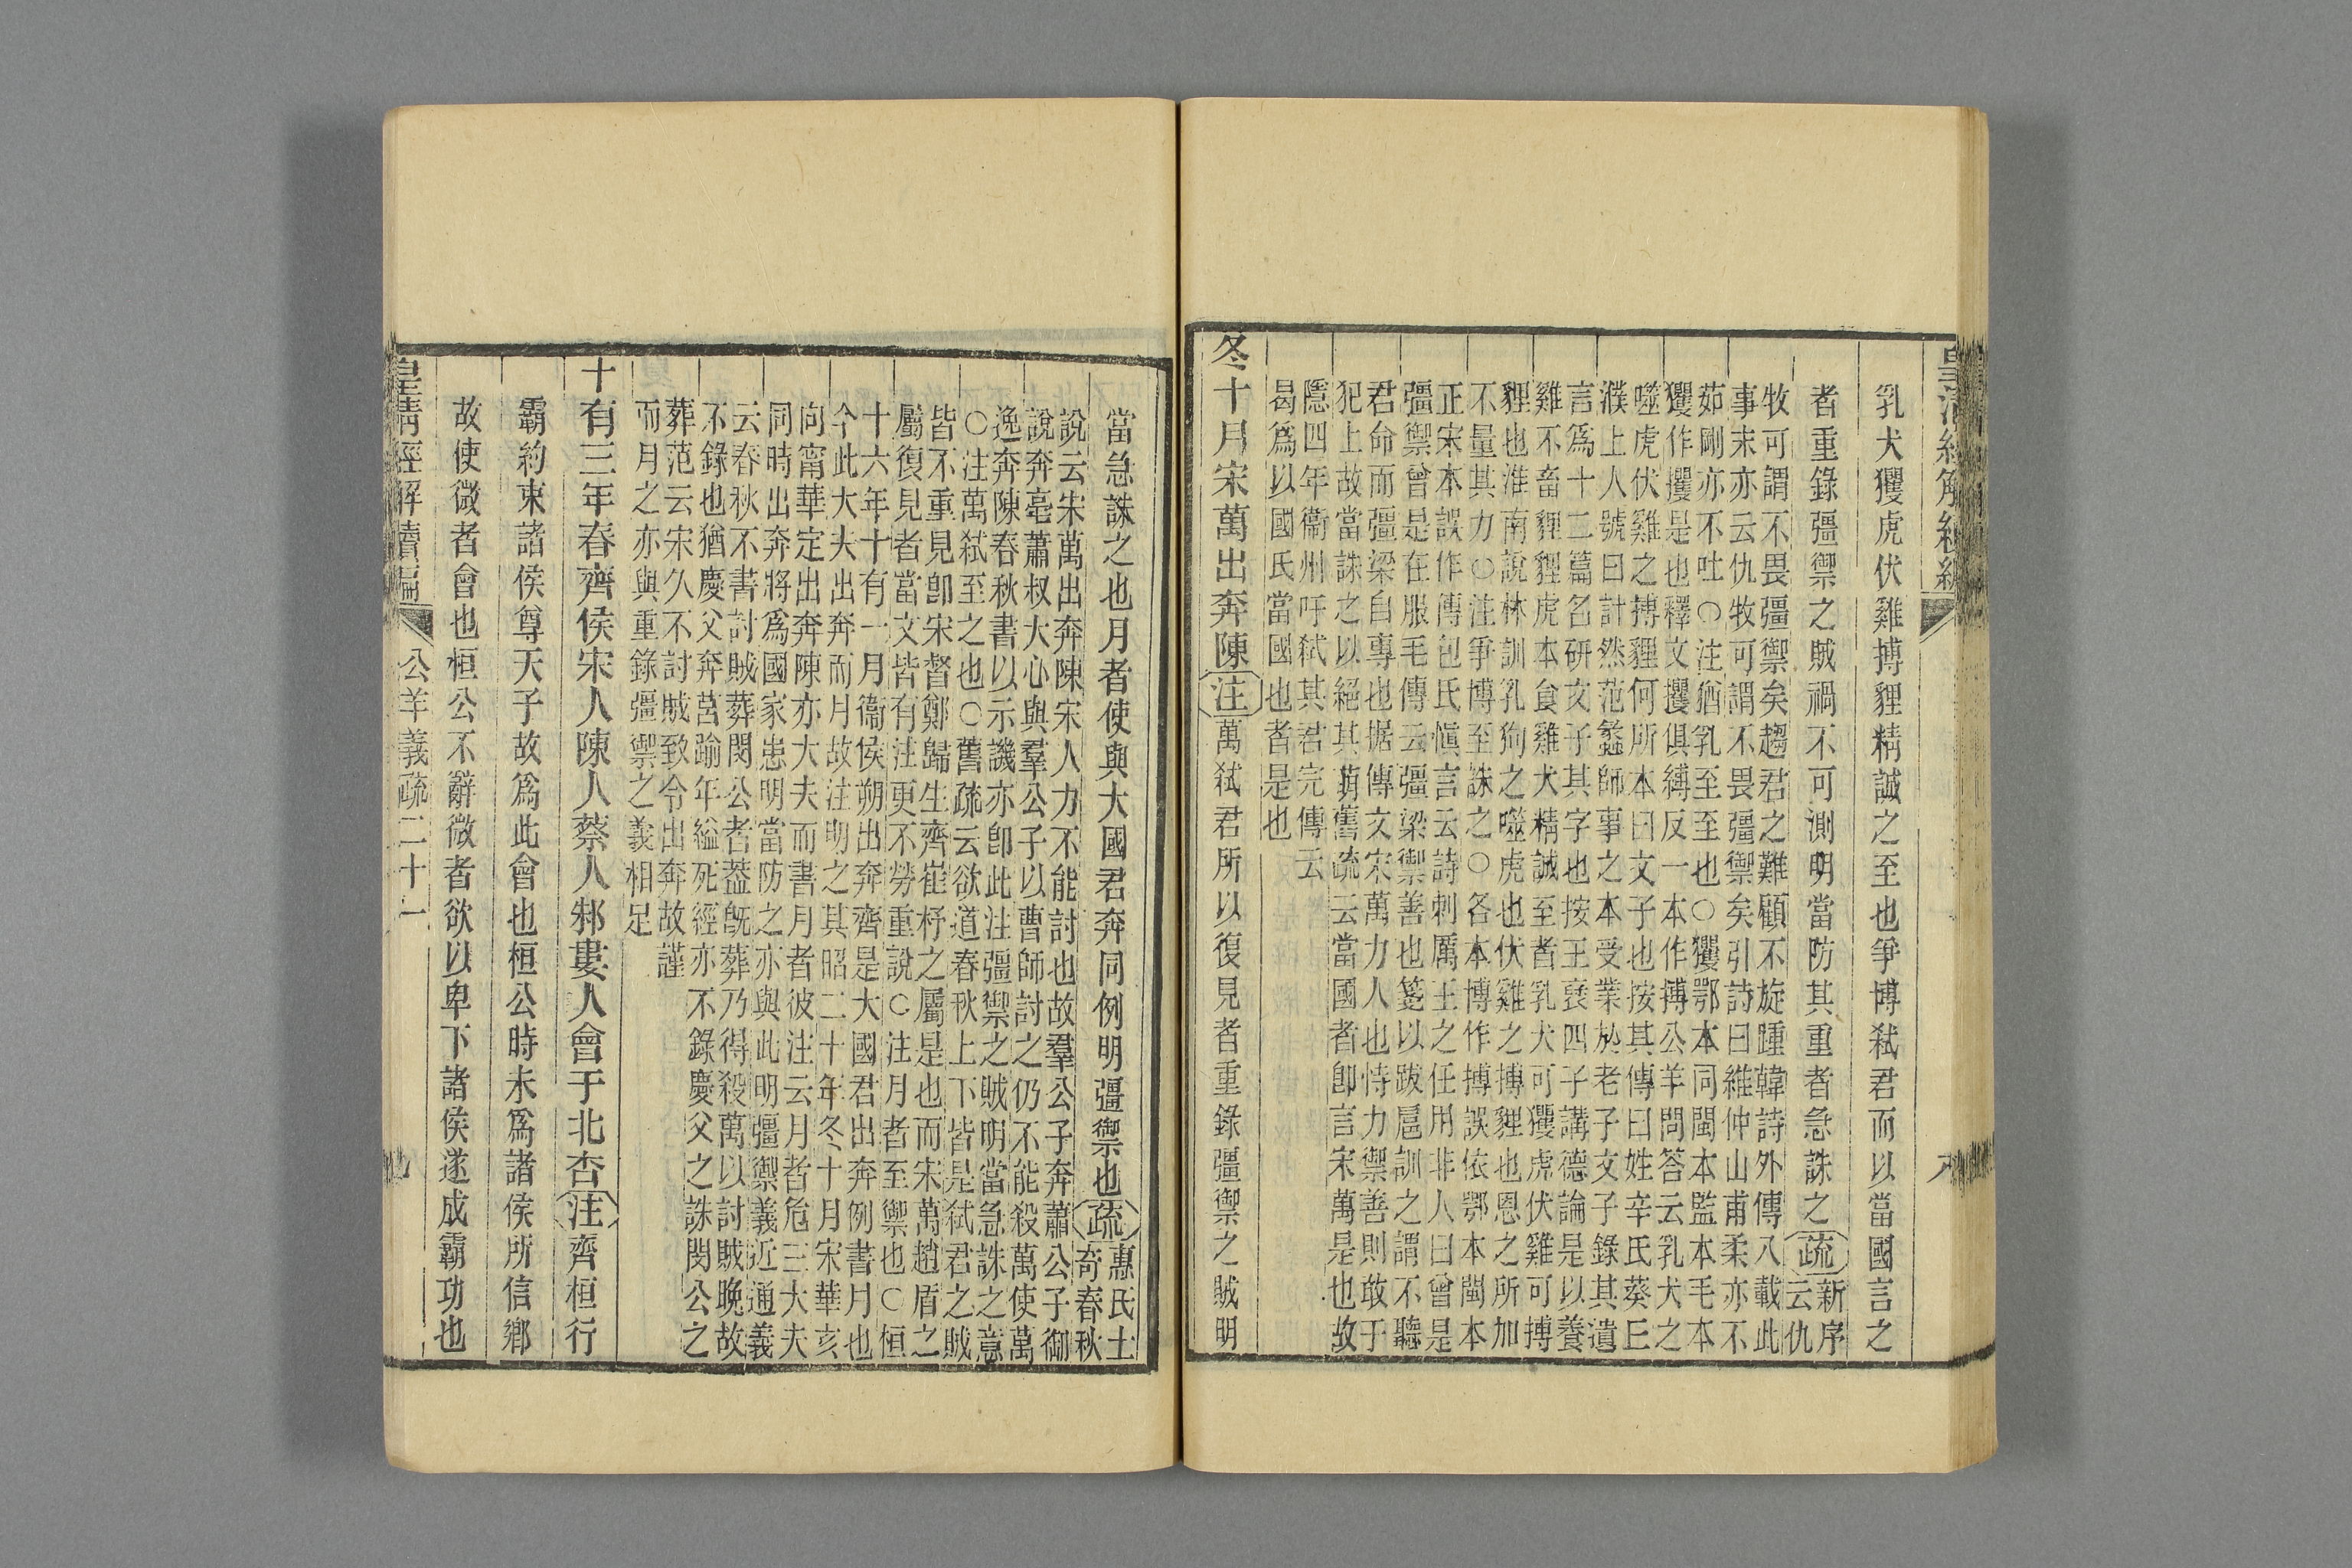 皇清經解續編
八
乳犬玃虎伏雞搏貍精誠之至也爭博弒君而以當國言之
者重錄彊禦之賊禍不可測明當防其重者急誅之疏新序
云仇
牧可謂不畏彊禦矣趨君之難顧不旋踵韓詩外傳八載此
事末亦云仇牧可謂不畏彊禦矣引詩曰維仲山甫柔亦不
茹剛亦不吐○注猶乳至至也○玃鄂本同閩本監本毛本
玃作攫是也釋文攫俱縛反一本作搏公羊問答云乳犬之
噬虎伏雞之搏貍何所本曰文子也按其傳曰姓辛氏葵丘
濮上人號曰計然范蠡師事之本受業於老子文子錄其遺
言爲十二篇名研文子其字也按王褒四子講德論是以養
雞不畜貍貍虎本食雞犬精誠至者乳犬可玃虎伏雞可搏
貍也淮南說林訓乳狗之噬虎也伏雞之搏貍也恩之所加
不量其力○注爭博至誅之○各本博作搏誤依鄂本閩本
正宋本誤作傳包氏愼言云詩刺厲王之任用非人曰曾是
彊禦曾是在服毛傳云彊梁禦善也箋以跋扈訓之謂不聽
君命而彊梁自專也据傳文宋萬力人也恃力禦善則敢于
犯上故當誅之以絕其萌舊疏云當國者卽言宋萬是也故
隱四年衞州吁弒其君完傳云
曷爲以國氏當國也者是也
冬十月宋萬出奔陳注萬弒君所以復見者重錄彊禦之賊明
當急誅之也月者使與大國君奔同例明彊禦也疏惠氏士
奇春秋
說云宋萬出奔陳宋人力不能討也故羣公子奔蕭公子御
說奔亳蕭叔大心與羣公子以曹師討之仍不能殺萬使萬
逸奔陳春秋書以示譏亦卽此注彊禦之賊明當急誅之意
○注萬弒至之也○舊疏云欲道春秋上下皆是弒君之賊
皆不重見卽宋督鄭歸生齊崔杼之屬是也而宋萬趙盾之
屬復見者當文皆有注更不勞重說○注月者至禦也○桓
十六年十有一月衞侯朔出奔齊是大國君出奔例書月也
今此大夫出奔而月故注明之其昭二十年冬十月宋華亥
向甯華定出奔陳亦大夫而書月者彼注云月者危三大夫
同時出奔將爲國家患明當防之亦與此明彊禦義近通義
云春秋不書討賊葬閔公者葢旣葬乃得殺萬以討賊晚故
不錄也猶慶父奔莒踰年縊死經亦不錄慶父之誅閔公之
葬范云宋久不討賊致令出奔故謹
而月之亦與重錄彊禦之義相足
十有三年春齊侯宋人陳人蔡人邾婁人會于北杏注齊桓行
霸約束諸侯尊天子故爲此會也桓公時未爲諸侯所信鄉
故使微者會也桓公不辭微者欲以卑下諸侯遂成霸功也
皇清經解續編
公羊義疏二十一
九